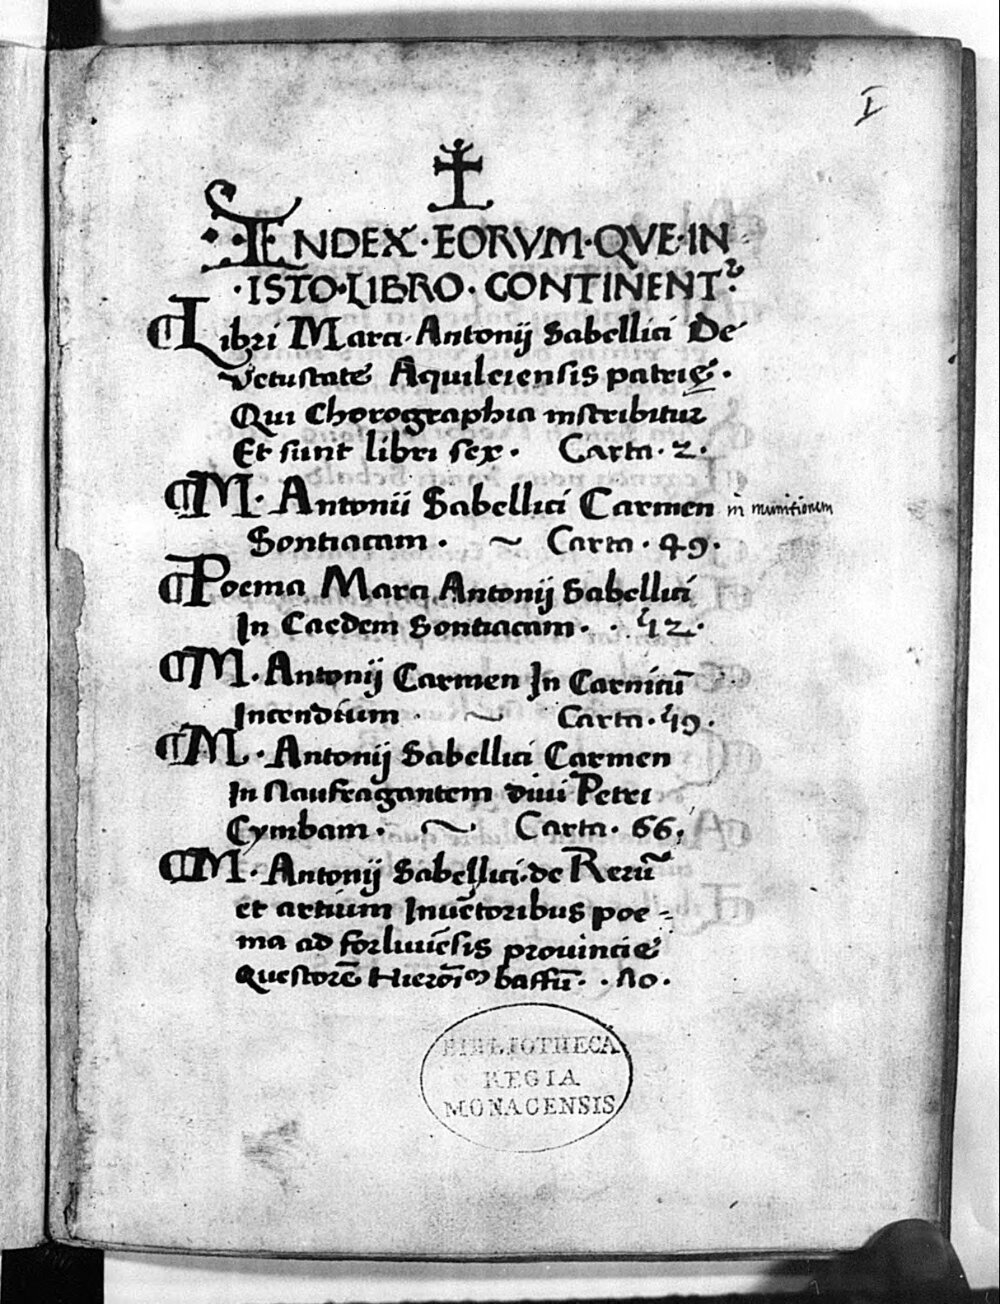 I
INDEX·EORVM·QVE·IN
·ISTO·LIBRO·CONTINENTᷣ·
¶Libri Marci·Antonij Sabellici De
Vetustate Aquileiensis patrie·
Qui Chorographia inscribitur
Et sunt libri sex· Carta·2·
¶M·Antonii Sabellici Carmen in munitionem
Sontiacam· ~ Carta·49·
¶Poema Marci Antonij Sabellici
In Caedem Sontiacam· · 52·
¶M·Antonij Carmen In Carnicũ
Incendium· ~ Carta·59·
¶M·Antonij Sabellici Carmen
In Naufragantem diui Petri
Cymbam· ~ Carta·66·
¶M·Antonij Sabellici·de Rerũ
et artium Inuẽtoribus poe-
ma ad forliuiẽsis prouincie
Questorẽ Hierõĩ baffũ· ·
BIBLIOTHECA
REGIA
MONACENSIS